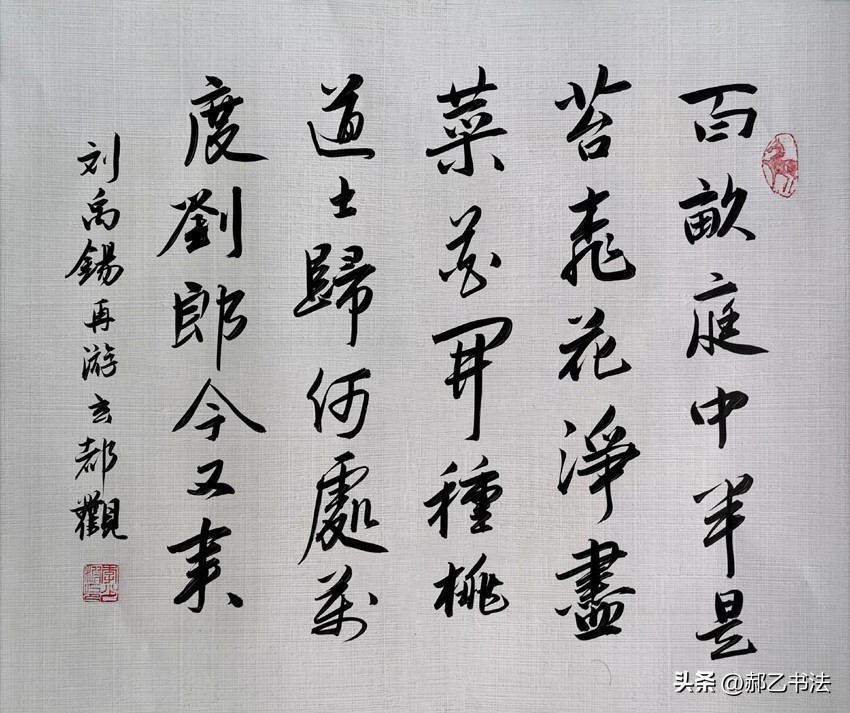 百畝庭中半是
苔桃花淨盡
菜花開種桃
道士歸何處前
度劉郎今又来
刘禹錫再游玄都觀
头条 @郝乙书法